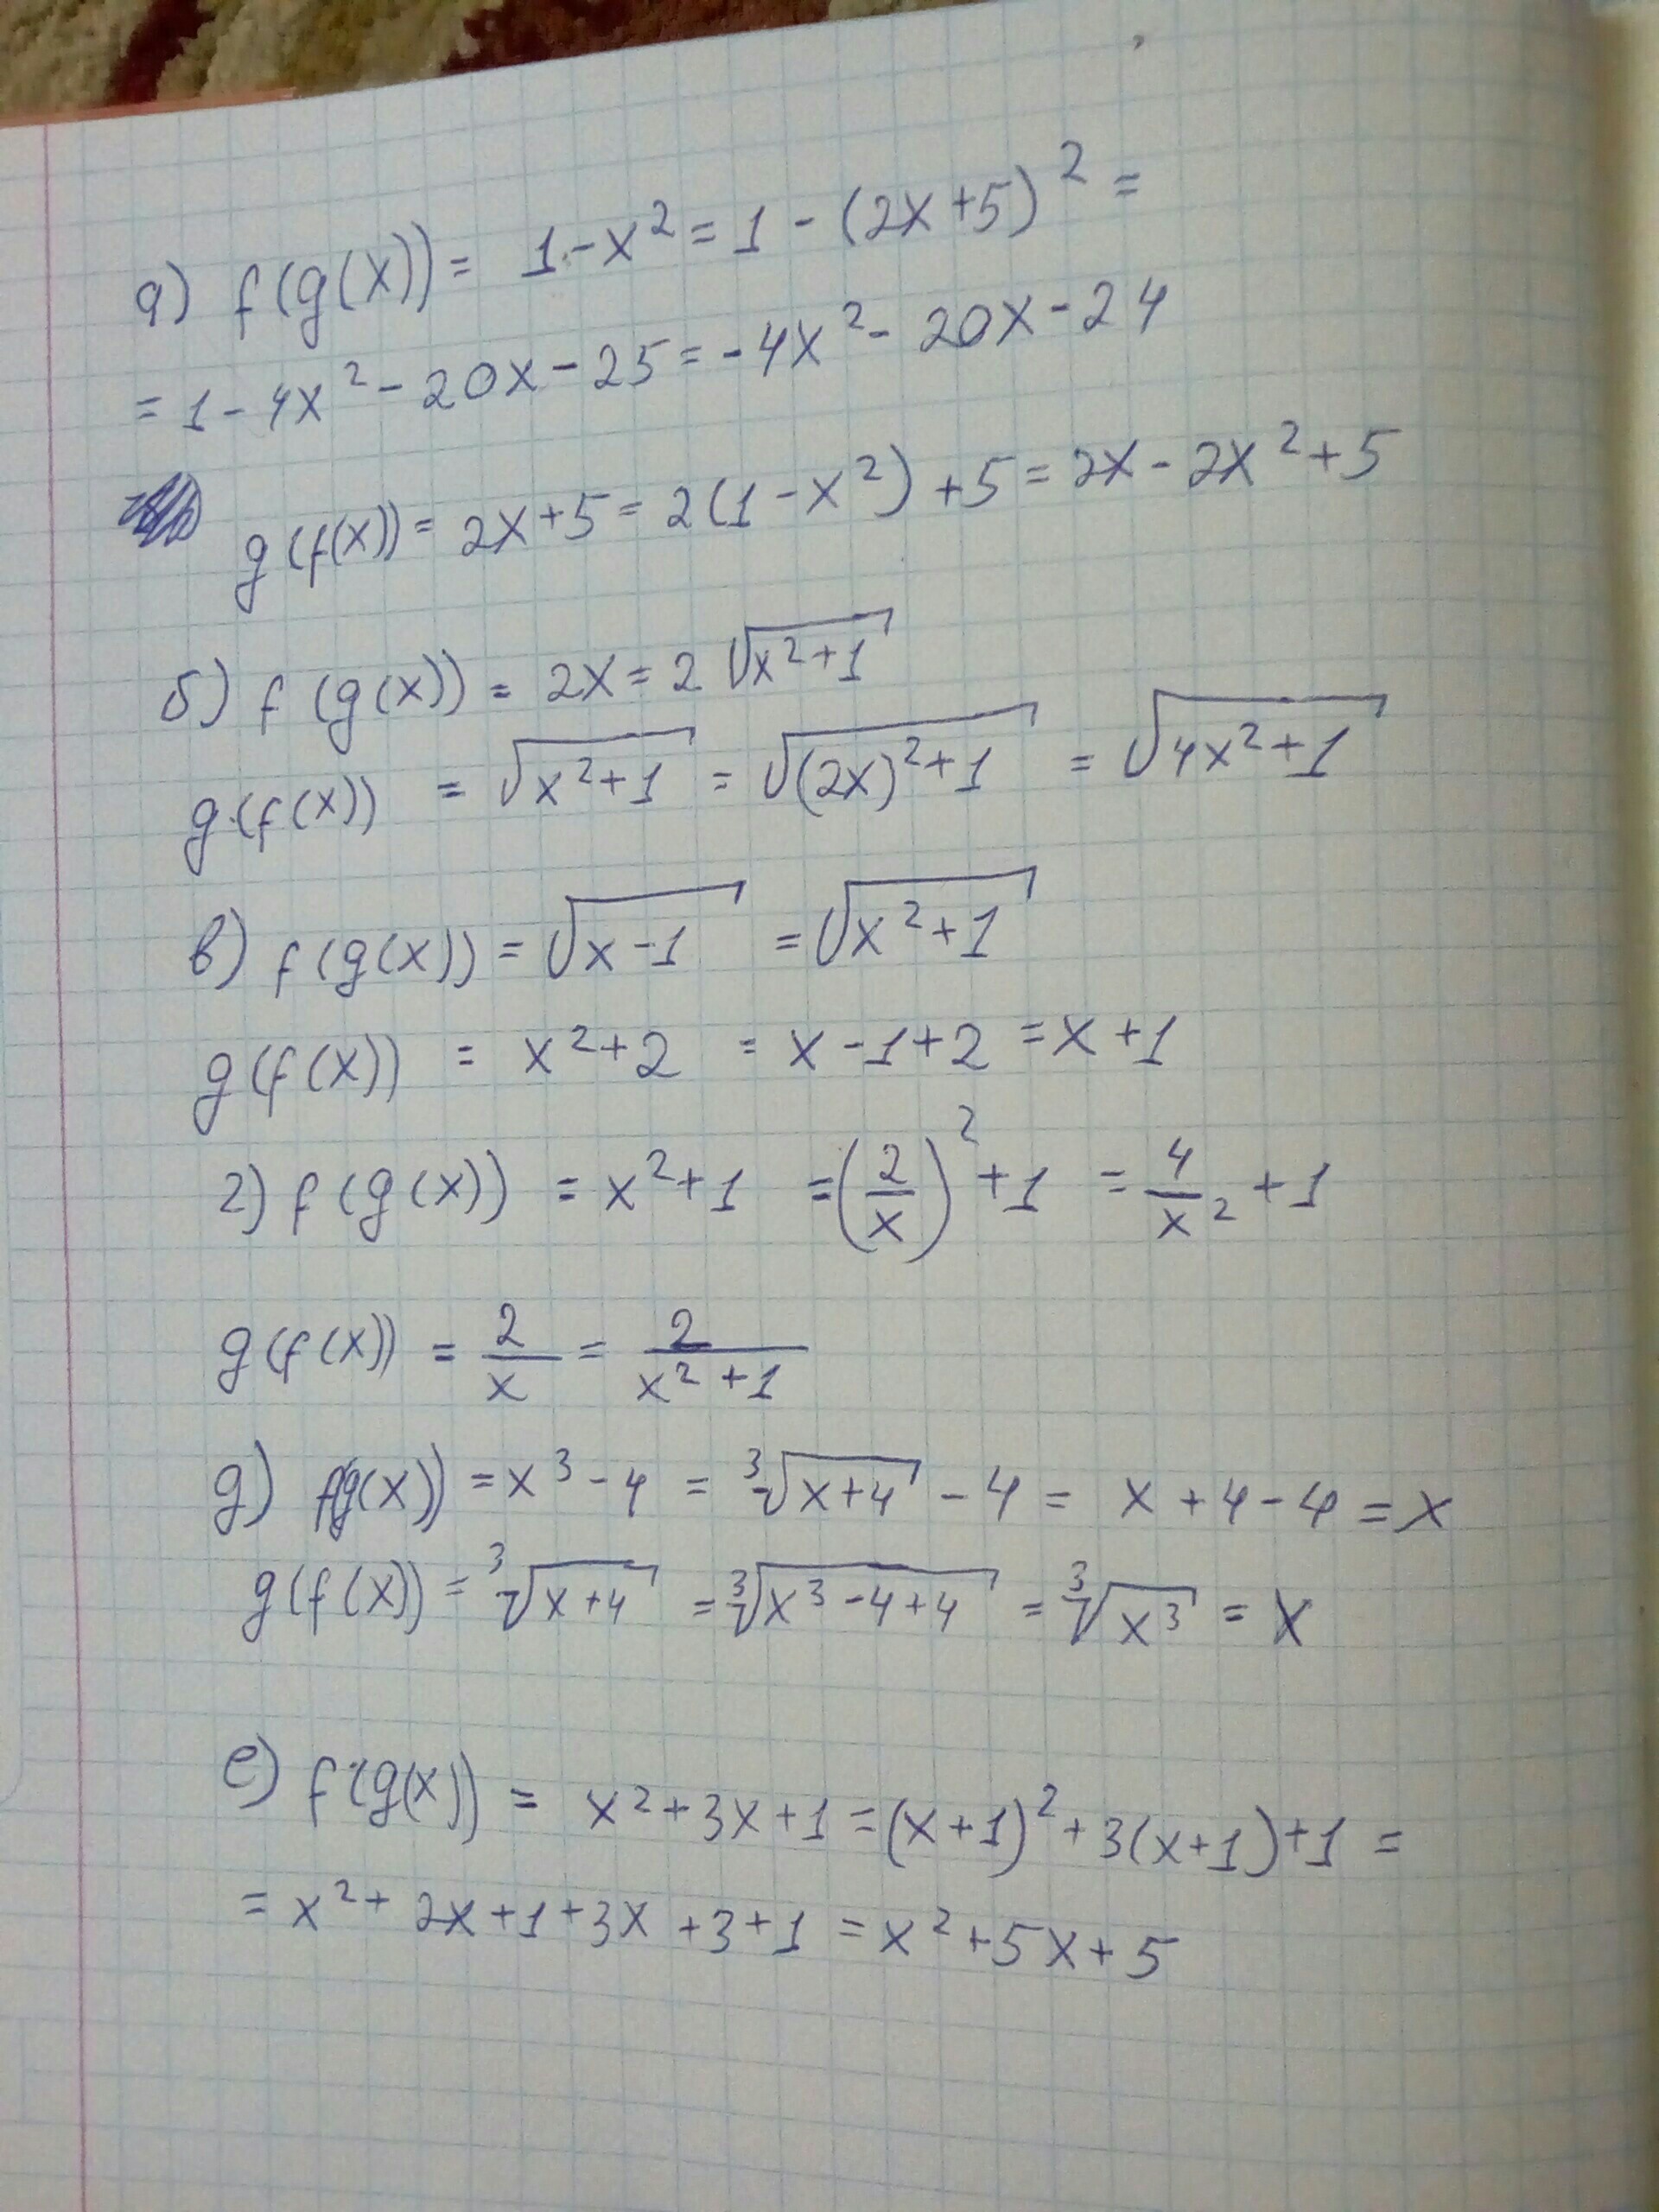 а) f(g(x)) = 1-x² = 1 - (2x+5)² =
= 1 - 4x² - 20x - 25 = -4x² - 20x - 24
g(f(x)) = 2x+5 = 2(1-x²)+5 = 2x - 2x² + 5
б) f(g(x)) = 2x = 2√(x²+1)
g(f(x)) = √(x²+1) = √((2x)²+1) = √(4x²+1)
в) f(g(x)) = √(x-1) = √(x²+1)
g(f(x)) = x²+2 = x-1+2 = x+1
г) f(g(x)) = x²+1 = (2/x)²+1 = 4/x² + 1
g(f(x)) = 2/x = 2/(x²+1)
д) f(g(x)) = x³-4 = ³√(x+4) - 4 = x+4-4 = x
g(f(x)) = ³√(x+4) = ³√(x³-4+4) = ³√(x³) = x
е) f(g(x)) = x²+3x+1 = (x+1)²+3(x+1)+1 =
= x²+2x+1+3x+3+1 = x²+5x+5